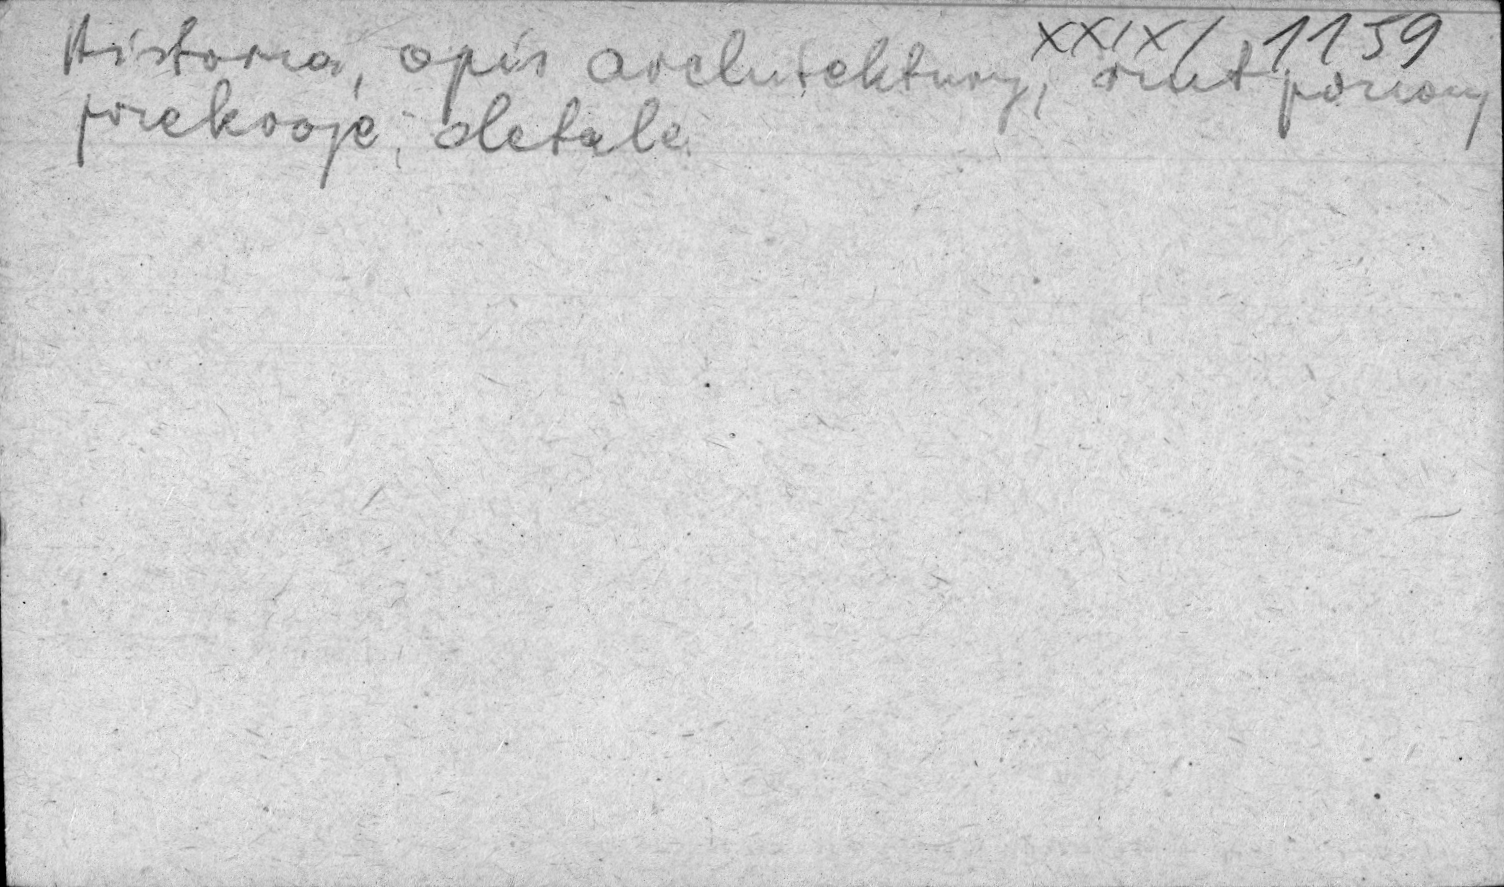 XXIX/1159
Historia, opis architektury, rzut poziomy
przekroje, detale